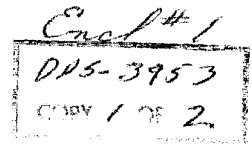 Encl #1
DDS-3953
COPY 1 OF 2